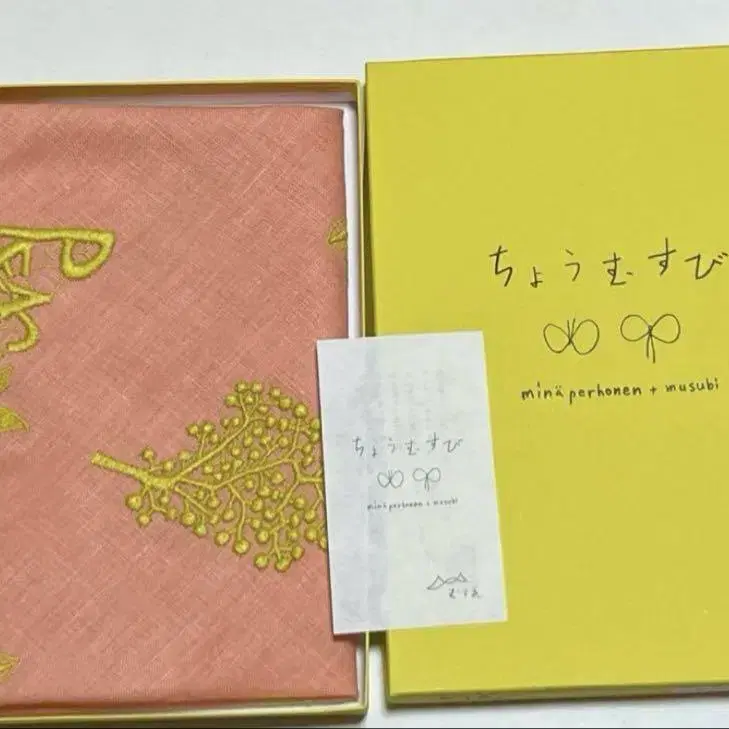 ちょうむすび
minä perhonen + musubi
ちょうむすび
minä perhonen + musubi
むす美